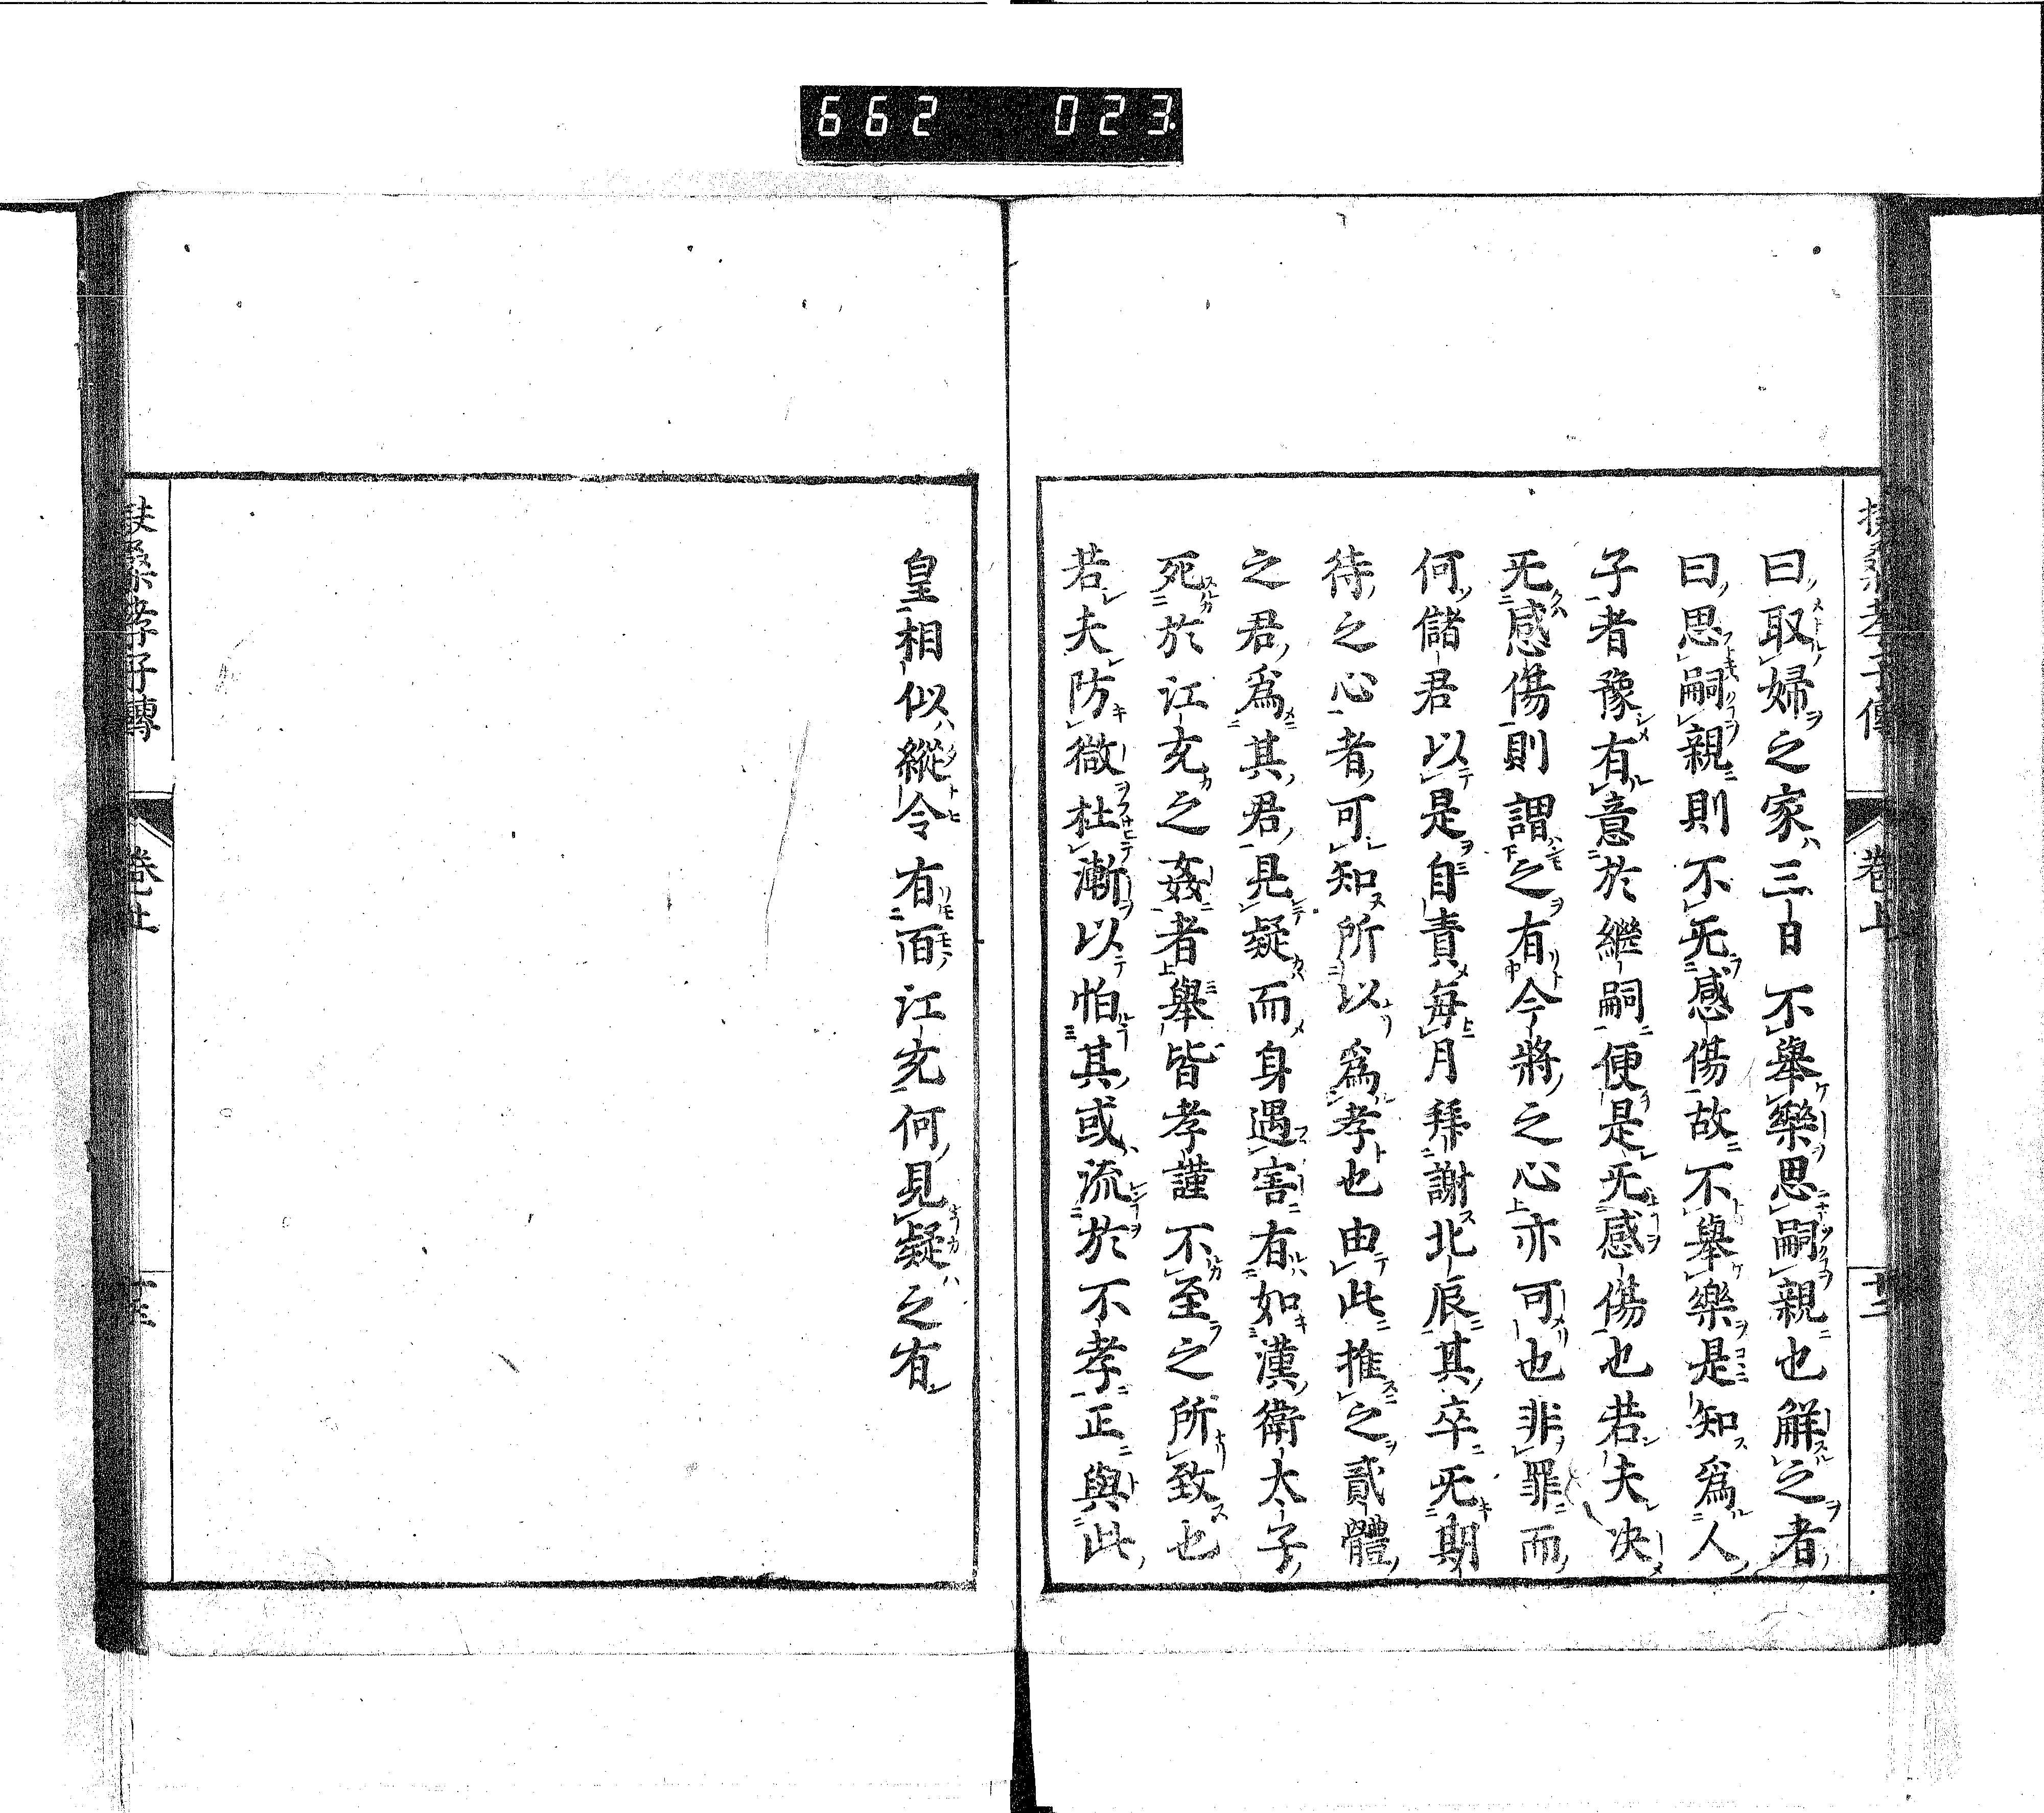 662 023
扶桑孝子傳 卷上 廿二
曰取婦之家三日不舉樂思嗣親也解之者
曰思嗣親則不无感傷故不舉樂是知爲人
子者豫有意於繼嗣便是无感傷也若夫决
无感傷則謂之有今將之心亦可也非罪而
何儲君以是自責每月拜謝北辰其卒无期
待之心者可知所以爲孝也由此推之貳體
之君爲其君見疑而身遇害有如漢衛太子
死於江充之姦者舉皆孝謹不至之所致也
若夫防微杜漸以怕其或流於不孝正與此
皇相似縱令有百江充何見疑之有
扶桑孝子傳 卷上